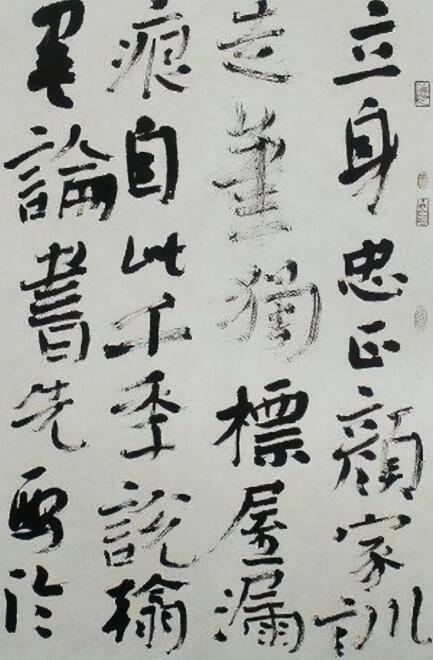 立身忠正顏家訓
走筆獨標屋漏
痕自此千秊說翰
墨論書先於